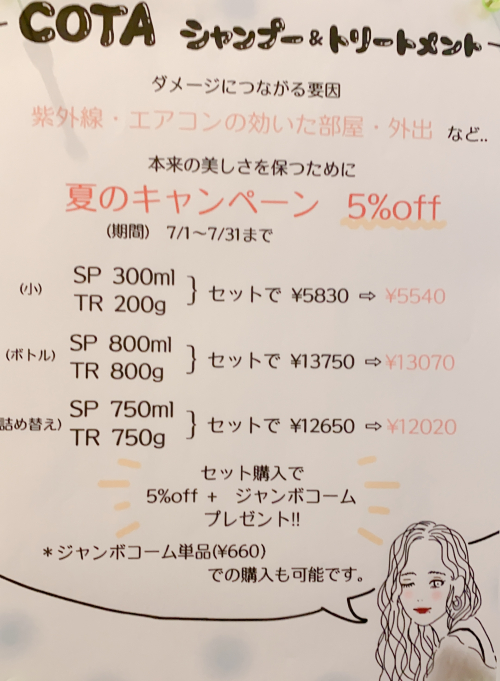 COTA シャンプー&トリートメント
ダメージにつながる要因
紫外線・エアコンの効いた部屋・外出 など..
本来の美しさを保つために
夏のキャンペーン 5%off
(期間) 7/1～7/31まで
(小) SP 300ml
TR 200g } セットで ¥5830 ⇨ ¥5540
(ボトル) SP 800ml
TR 800g } セットで ¥13750 ⇨ ¥13070
詰め替え) SP 750ml
TR 750g } セットで ¥12650 ⇨ ¥12020
セット購入で
5%off + ジャンボコーム
プレゼント!!
*ジャンボコーム単品(¥660)
での購入も可能です。